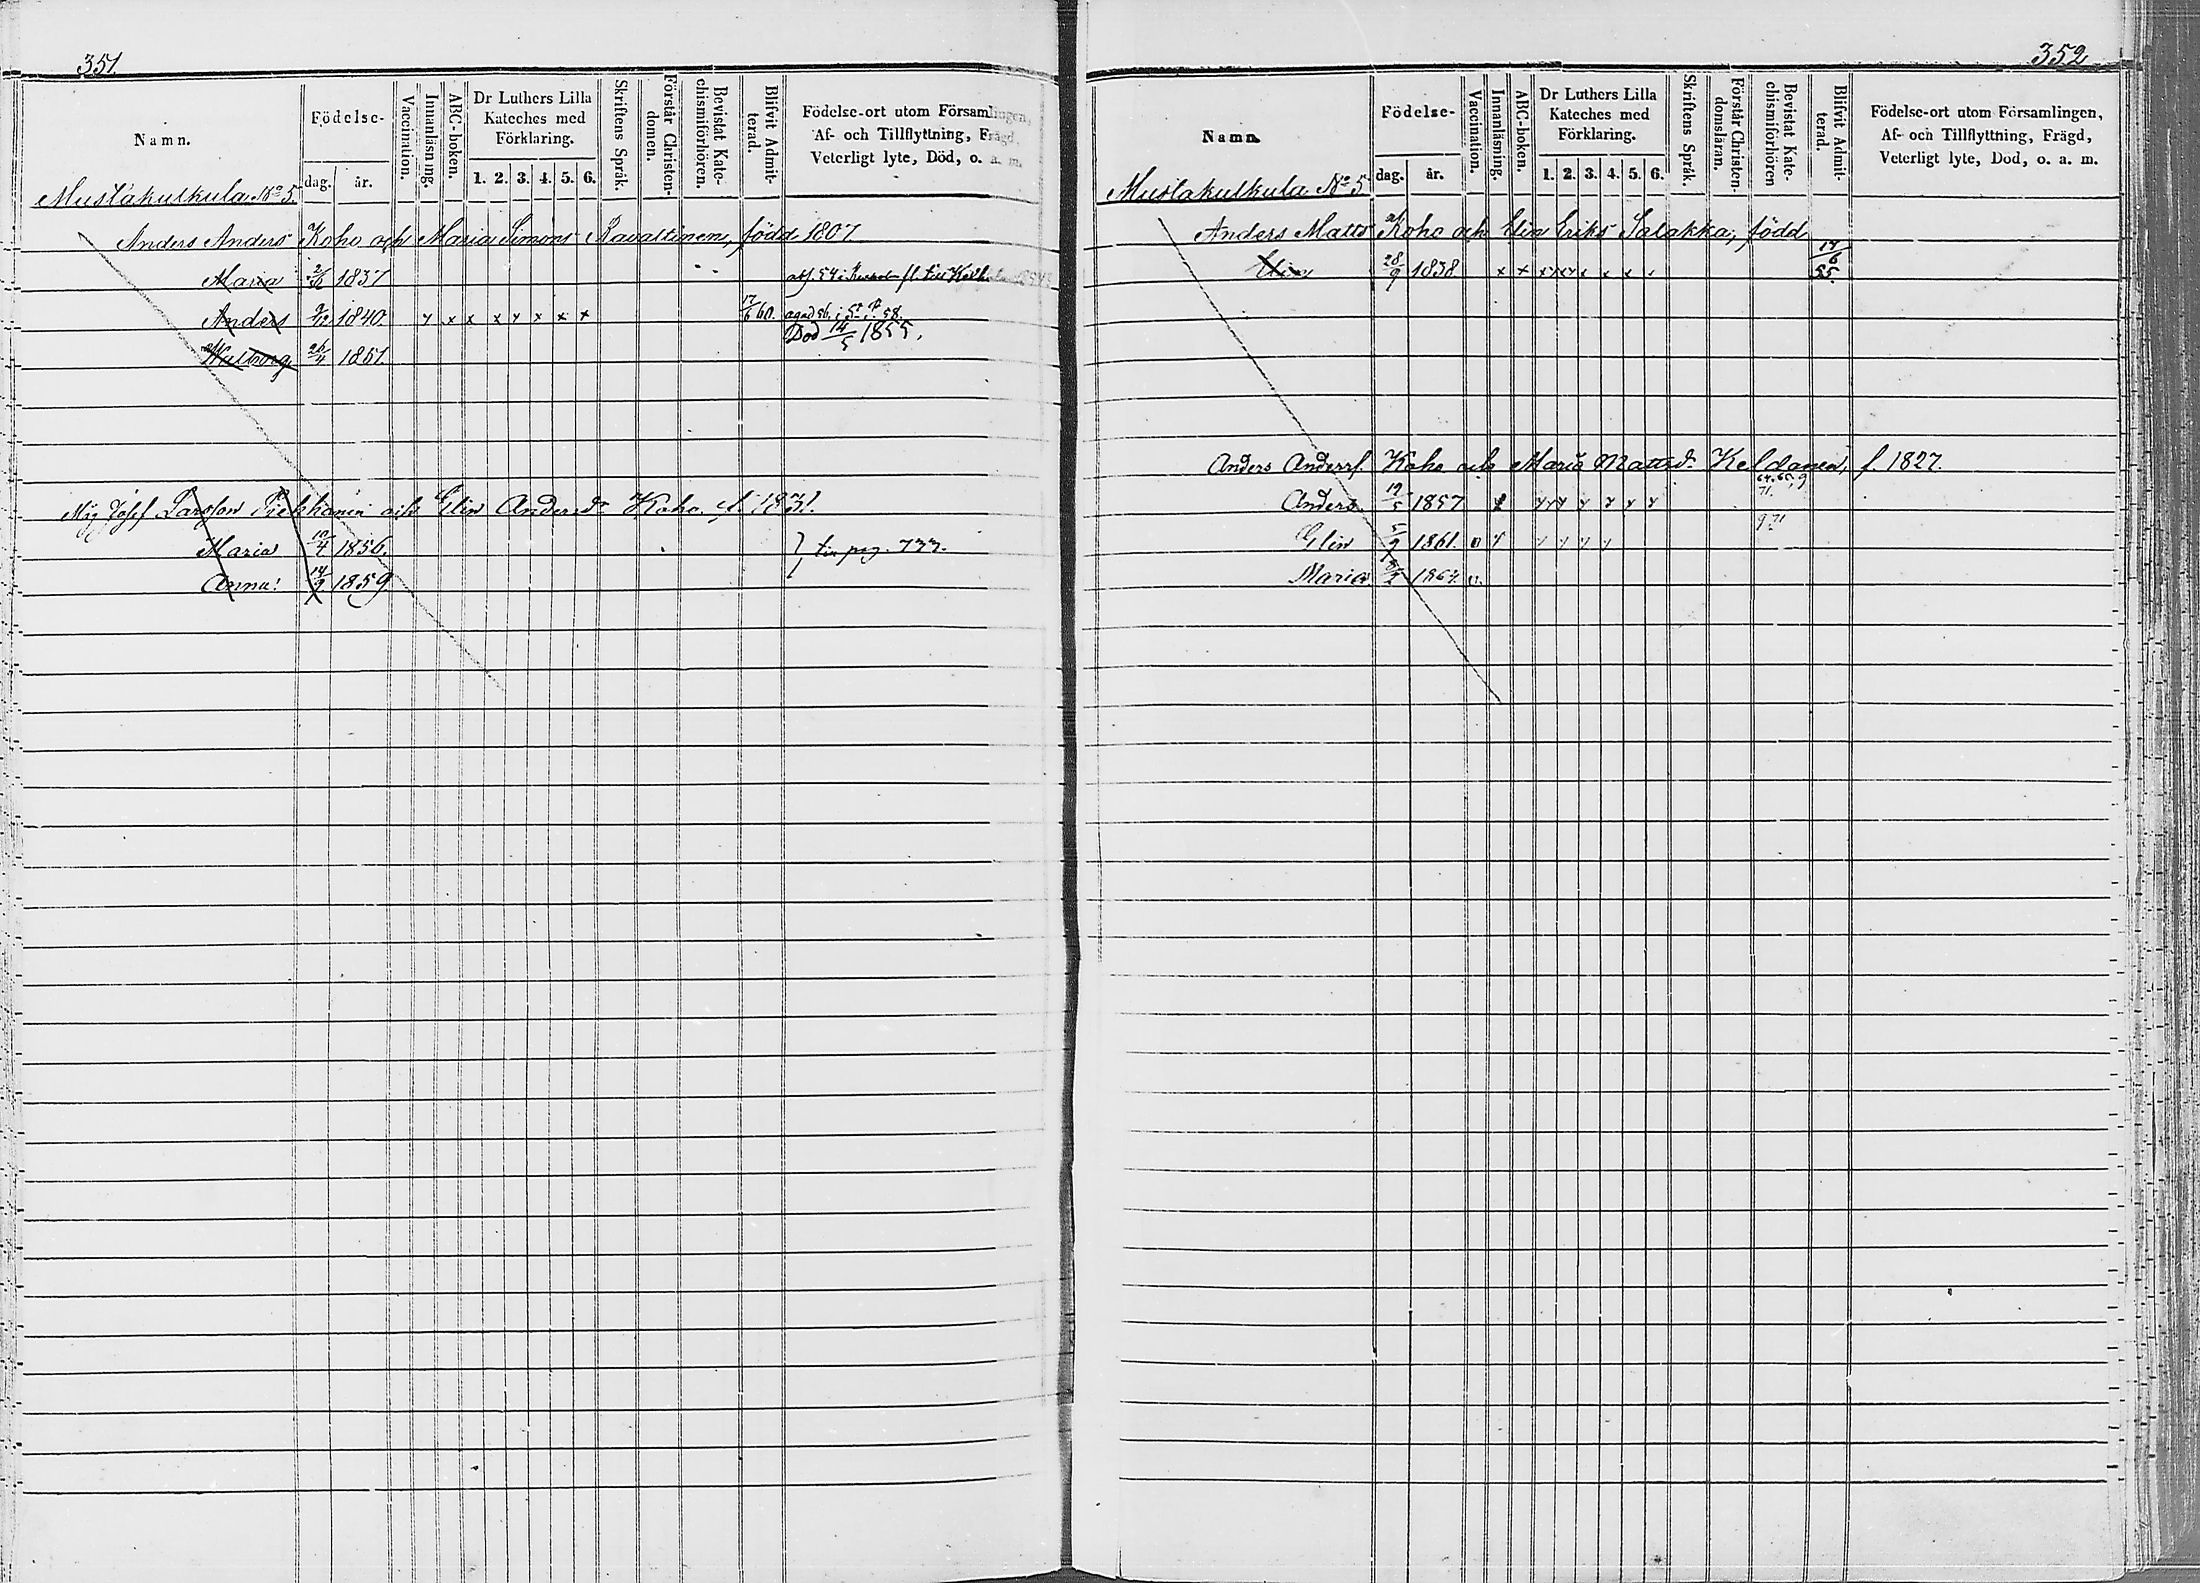 351.
Namn.
Födelse-
dag.
år.
Vaccination.
Innanläsning.
ABC-boken.
Dr Luthers Lilla
Kateches med
Förklaring.
1. 2. 3. 4. 5. 6.
Skriftens Språk.
Förstår Christen-
domen.
Bevistat Kate-
chismiförhören.
Blifvit Admit-
terad.
Födelse-ort utom Församlingen,
Af- och Tillflyttning, Frägd,
Veterligt lyte, Död, o. a. m.
Mustakulkula No 5.
Anders Anders Koho och Maria Simons Ravattinen, född 1807.
Maria 1837
Anders 9/12 1840. x x x x x x x x 17/6 60.
Död 14/5 1855.
Walborg 26/11 1851.
Josef Larsson och Elin Andersdr Koho. f. 1831.
Maria 10/4 1856. } pag. 777.
Anna 14/9 1859.
352
Namn.
Födelse-
dag.
år.
Vaccination.
Innanläsning.
ABC-boken.
Dr Luthers Lilla
Kateches med
Förklaring.
1. 2. 3. 4. 5. 6.
Skriftens Språk.
Förstår Christen-
domsläran.
Bevistat Kate-
chismiförhören
Blifvit Admit-
terad.
Födelse-ort utom Församlingen,
Af- och Tillflyttning, Frägd,
Veterligt lyte, Död, o. a. m.
Mustakulkula No 5
Anders Matts Koho och Elin Eriks Salakka, född
Elin 28/9 1838 x x x x x x x x 17/6 55.
Anders Anderss. Koho och Maria Mattsdr Keldanen, f. 1827.
Anders 19/5 1857
Elin 5/9 1861.
Maria 1864